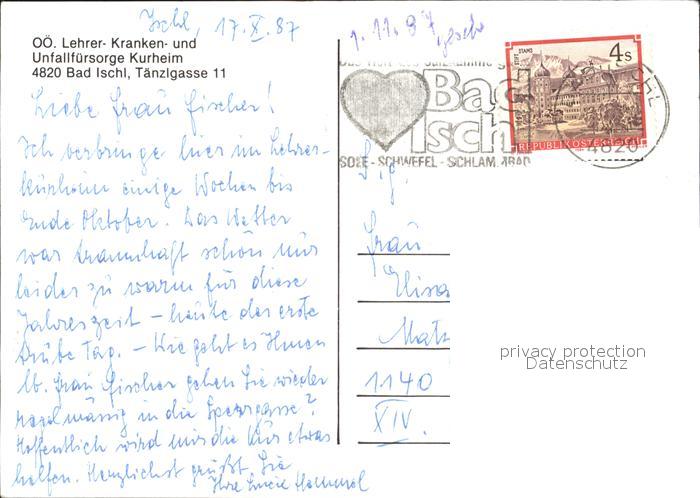 Ischl, 17.X.87
1.11.87
OÖ. Lehrer- Kranken- und
Unfallfürsorge Kurheim
4820 Bad Ischl, Tänzlgasse 11
Liebe Frau Fischer!
Ich verbringe hier im Lehrer-
kurheim einige Wochen bis
Ende Oktober. Das Wetter
war traumhaft schön nur
leider zu warm für diese
Jahreszeit – heute der erste
trübe Tag. – Wie geht es Ihnen
lb. Frau Fischer gehen Sie wieder
regelmässig in die Sperrgasse?
Hoffentlich wird mir die Kur etwas
helfen. Herzlichst grüßt Sie
Ihre Lucie
Bad
Ischl
SOLE - SCHWEFEL - SCHLAMMBAD
STIFT STAMS
4 S
REPUBLIK ÖSTERREICH
4820
S. g.
Frau
1140
XIV.
privacy protection
Datenschutz